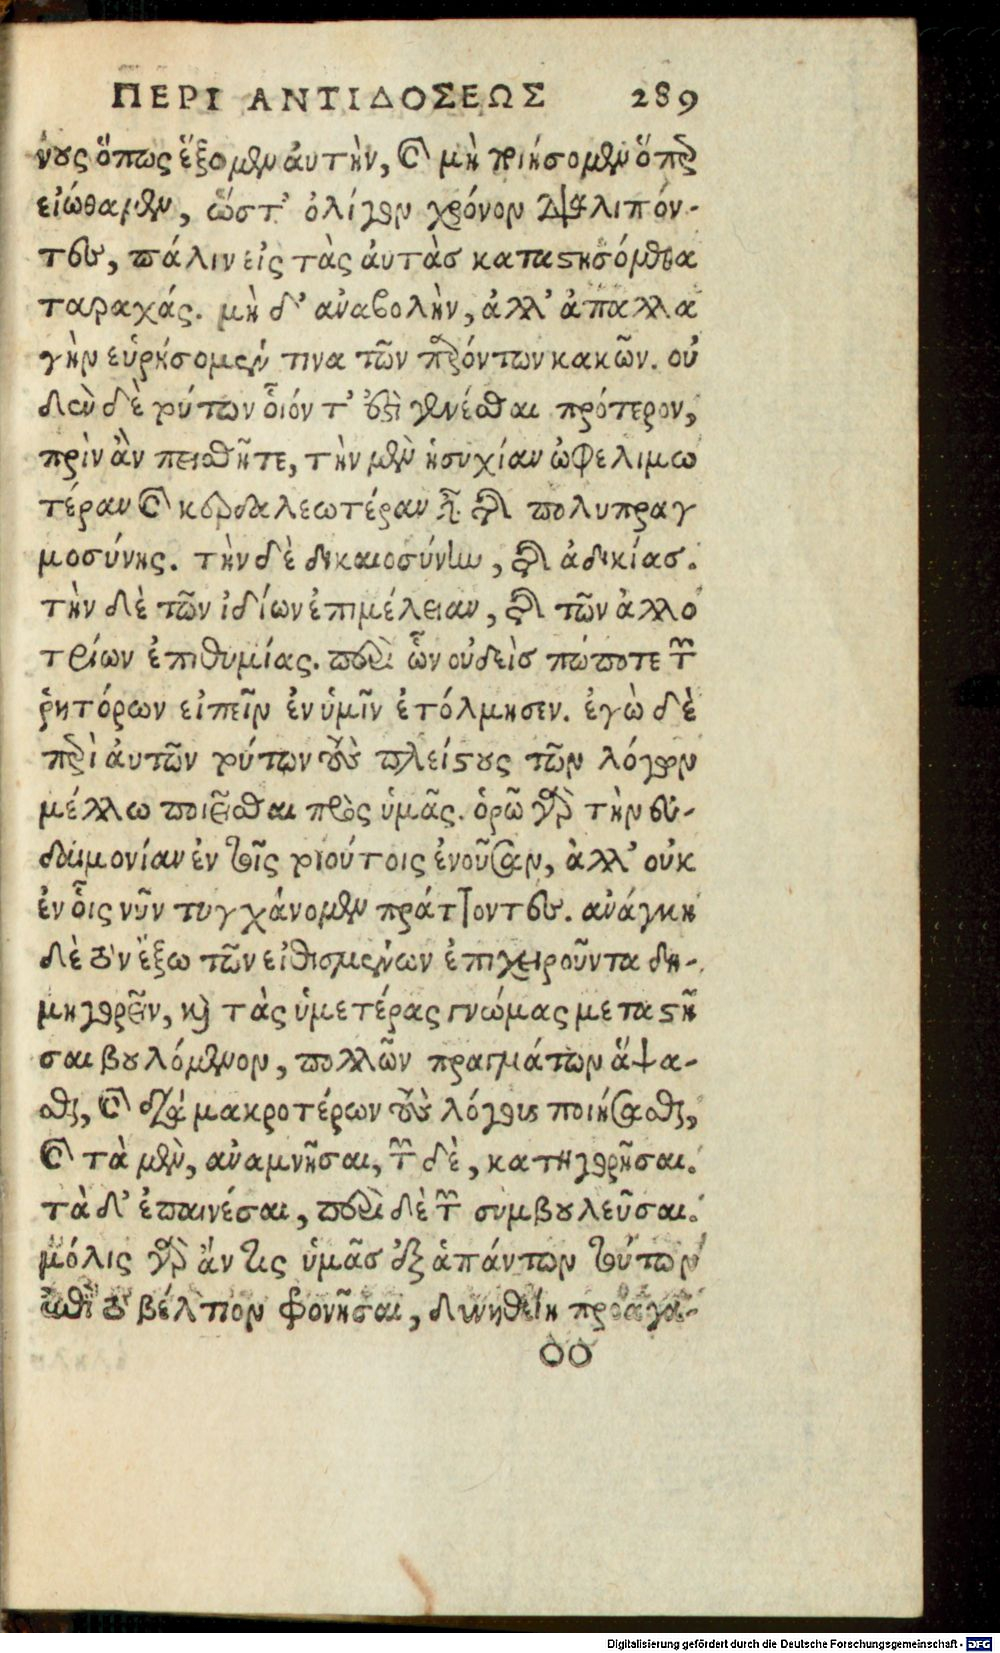 ΠΕΡΙ ΑΝΤΙΔΟΣΕΩΣ 289
νους ὅπως ἕξομεν αὐτὴν, καὶ μὴ ποιήσομεν ὅπερ
εἰώθαμεν, ὥστ' ὀλίγον χρόνον διαλιπόν-
τες, πάλιν εἰς τὰς αὐτὰσ καταστησόμεθα
ταραχάς. μὴ δ' ἀναβολὴν, ἀλλ' ἀπαλλα
γὴν εὑρήσομεν τινα τῶν παρόντων κακῶν. οὐ
δὲν δὲ τούτων οἷόν τ' ἐστὶ γενέσθαι πρότερον,
πρὶν ἂν πεισθῆτε, τὴν μὲν ἡσυχίαν ὠφελιμω
τέραν καὶ κερδαλεωτέραν εἶναι τῆς πολυπραγ
μοσύνης. τὴν δὲ δικαιοσύνην, τῆς ἀδικίας.
τὴν δὲ τῶν ἰδίων ἐπιμέλειαν, τῆς τῶν ἀλλο
τρίων ἐπιθυμίας. περὶ ὧν οὐδεὶσ πώποτε τῶν
ῥητόρων εἰπεῖν ἐν ὑμῖν ἐτόλμησεν. ἐγὼ δὲ
περὶ αὐτῶν τούτων τοὺς πλείστους τῶν λόγων
μέλλω ποιεῖσθαι πρὸς ὑμᾶς. ὁρῶ γὰρ τὴν εὐ-
δαιμονίαν ἐν τοῖς τοιούτοις ἐνοῦσαν, ἀλλ' οὐκ
ἐν οἷς νῦν τυγχάνομεν πράττοντες. ἀνάγκη
δὲ τὸν ἔξω τῶν εἰθισμένων ἐπιχειροῦντα δη-
μηγορεῖν, καὶ τὰς ὑμετέρας γνώμας μεταστῆ
σαι βουλόμενον, πολλῶν πραγμάτων ἅψα-
σθαι, καὶ διὰ μακροτέρων τοὺς λόγους ποιήσασθαι,
καὶ τὰ μὲν, ἀναμνῆσαι, τῶν δὲ, κατηγορῆσαι.
τὰ δ' ἐπαινέσαι, περὶ δὲ τῶν συμβουλεῦσαι.
μόλις γὰρ ἄν τις ὑμᾶσ ἐξ ἁπάντων τούτων
ἐπὶ τὸ βέλτιον φρονῆσαι, δυνηθείη προαγα-
οο
Digitalisierung gefördert durch die Deutsche Forschungsgemeinschaft - DFG